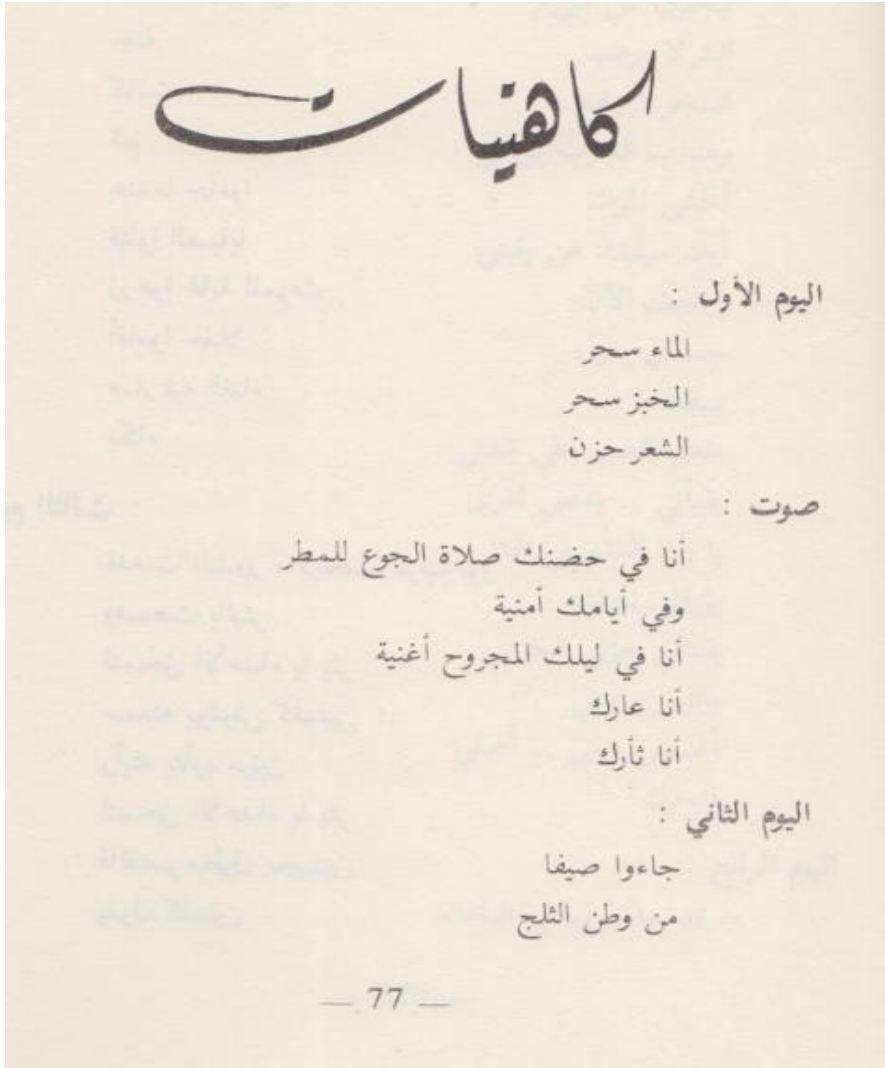 كاهنيات
اليوم الأول :
الماء سحر
الخبز سحر
الشعر حزن
صوت :
أنا في حضنك صلاة الجوع للمطر
وفي أيامك أمنية
أنا في ليلك المجروح أغنية
أنا عارك
أنا ثأرك
اليوم الثاني :
جاءوا صيفا
من وطن الثلج
— 77 —